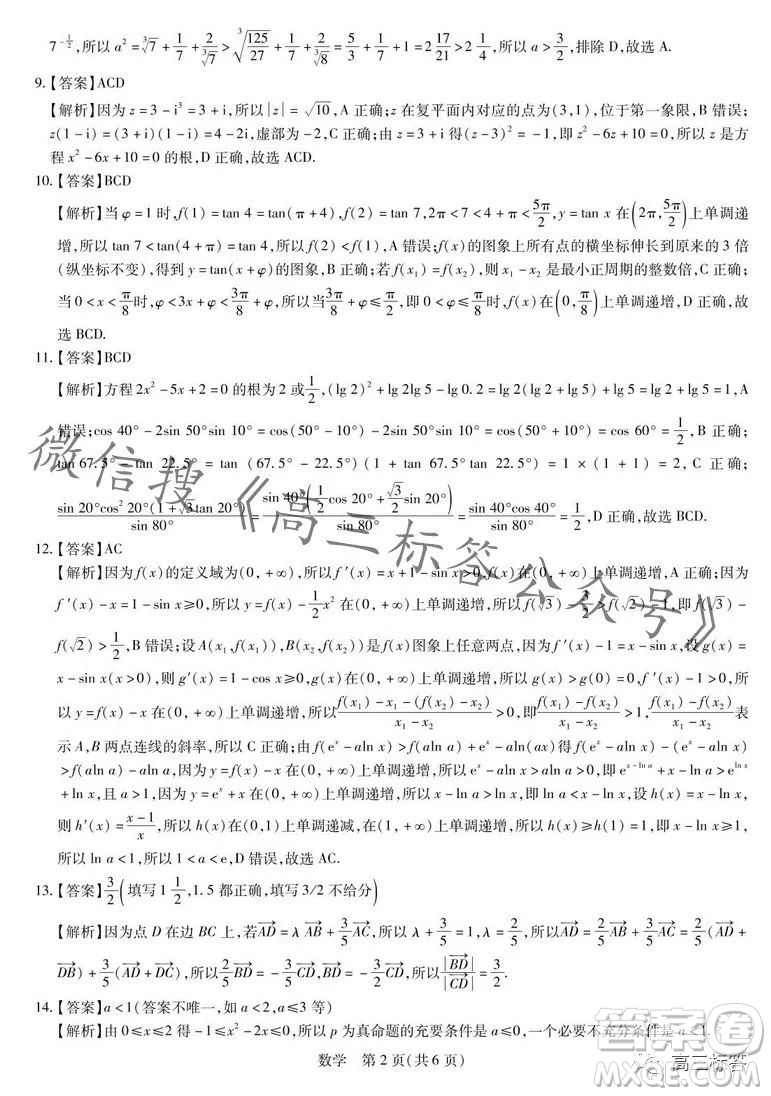 7^{-1/2},所以 a²=∛7+1/7+2/∛7>∛(125/27)+1/7+2/∛8=5/3+1/7+1=2 17/21>2 1/4,所以 a>3/2,排除 D,故选 A.
9.【答案】ACD
【解析】因为 z=3-i³=3+i,所以|z|=√10,A 正确;z 在复平面内对应的点为(3,1),位于第一象限,B 错误;
z(1-i)=(3+i)(1-i)=4-2i,虚部为-2,C 正确;由 z=3+i 得(z-3)²=-1,即 z²-6z+10=0,所以 z 是方
程 x²-6x+10=0 的根,D 正确,故选 ACD.
10.【答案】BCD
【解析】当 φ=1 时,f(1)=tan 4=tan(π+4),f(2)=tan 7,2π<7<4+π<5π/2,y=tan x 在(2π,5π/2)上单调递
增,所以 tan 7<tan(4+π)=tan 4,所以 f(2)<f(1),A 错误;f(x)的图象上所有点的横坐标伸长到原来的 3 倍
(纵坐标不变),得到 y=tan(x+φ)的图象,B 正确;若 f(x₁)=f(x₂),则 x₁-x₂ 是最小正周期的整数倍,C 正确;
当 0<x<π/8时,φ<3x+φ<3π/8+φ,所以当3π/8+φ≤π/2,即 0<φ≤π/8时,f(x)在(0,π/8)上单调递增,D 正确,故
选 BCD.
11.【答案】BCD
【解析】方程 2x²-5x+2=0 的根为 2 或1/2,(lg 2)²+lg 2lg 5-lg 0.2=lg 2(lg 2+lg 5)+lg 5=lg 2+lg 5=1,A
错误;cos 40°-2sin 50°sin 10°=cos(50°-10°)-2sin 50°sin 10°=cos(50°+10°)=cos 60°=1/2,B 正确;
tan 67.5°-tan 22.5°=tan (67.5°-22.5°)(1+tan 67.5°tan 22.5°)=1×(1+1)=2,C 正确;
sin 20°cos² 20°(1+√3tan 20°)/sin 80°=sin 40°(1/2cos 20°+√3/2sin 20°)/sin 80°=sin 40°cos 40°/sin 80°=1/2,D 正确,故选 BCD.
12.【答案】AC
【解析】因为 f(x)的定义域为(0,+∞),所以 f′(x)=x+1-sin x>0,f(x)在(0,+∞)上单调递增,A 正确;因为
f′(x)-x=1-sin x≥0,所以 y=f(x)-1/2x²在(0,+∞)上单调递增,所以 f(√3)-3/2>f(√2)-1,即 f(√3)-
f(√2)>1/2,B 错误;设 A(x₁,f(x₁)),B(x₂,f(x₂))是 f(x)图象上任意两点,因为 f′(x)-1=x-sin x,设 g(x)=
x-sin x(x>0),则 g′(x)=1-cos x≥0,g(x)在(0,+∞)上单调递增,所以 g(x)>g(0)=0,f′(x)-1>0,所
以 y=f(x)-x 在(0,+∞)上单调递增,所以(f(x₁)-x₁-(f(x₂)-x₂))/(x₁-x₂)>0,即(f(x₁)-f(x₂))/(x₁-x₂)>1,(f(x₁)-f(x₂))/(x₁-x₂)表
示 A,B 两点连线的斜率,所以 C 正确;由 f(eˣ-aln x)>f(aln a)+eˣ-aln(ax)得 f(eˣ-aln x)-(eˣ-aln x)
>f(aln a)-aln a,因为 y=f(x)-x 在(0,+∞)上单调递增,所以 eˣ-aln x>aln a>0,即 e^{x-ln a}+x-ln a>e^{ln x}
+ln x,且 a>1,因为 y=eˣ+x 在(0,+∞)上单调递增,所以 x-ln a>ln x,即 ln a<x-ln x,设 h(x)=x-ln x,
则 h′(x)=(x-1)/x,所以 h(x)在(0,1)上单调递减,在(1,+∞)上单调递增,所以 h(x)≥h(1)=1,即 x-ln x≥1,
所以 ln a<1,所以 1<a<e,D 错误,故选 AC.
13.【答案】3/2(填写 1 1/2,1.5 都正确,填写 3/2 不给分)
【解析】因为点 D 在边 BC 上,若AD→=λ AB→+3/5AC→,所以 λ+3/5=1,λ=2/5,所以AD→=2/5AB→+3/5AC→=2/5(AD→+
DB→)+3/5(AD→+DC→),所以2/5BD→=-3/5CD→,所以BD→=-3/2CD→,所以|BD→|/|CD→|=3/2.
14.【答案】a<1(答案不唯一,如 a<2,a≤3 等)
【解析】由 0≤x≤2 得-1≤x²-2x≤0,所以 p 为真命题的充要条件是 a≤0,一个必要不充分条件是 a<1.
数学 第 2 页(共 6 页)
微信搜《高三标答公众号》
高三标答
答案圈
MXQE.COM